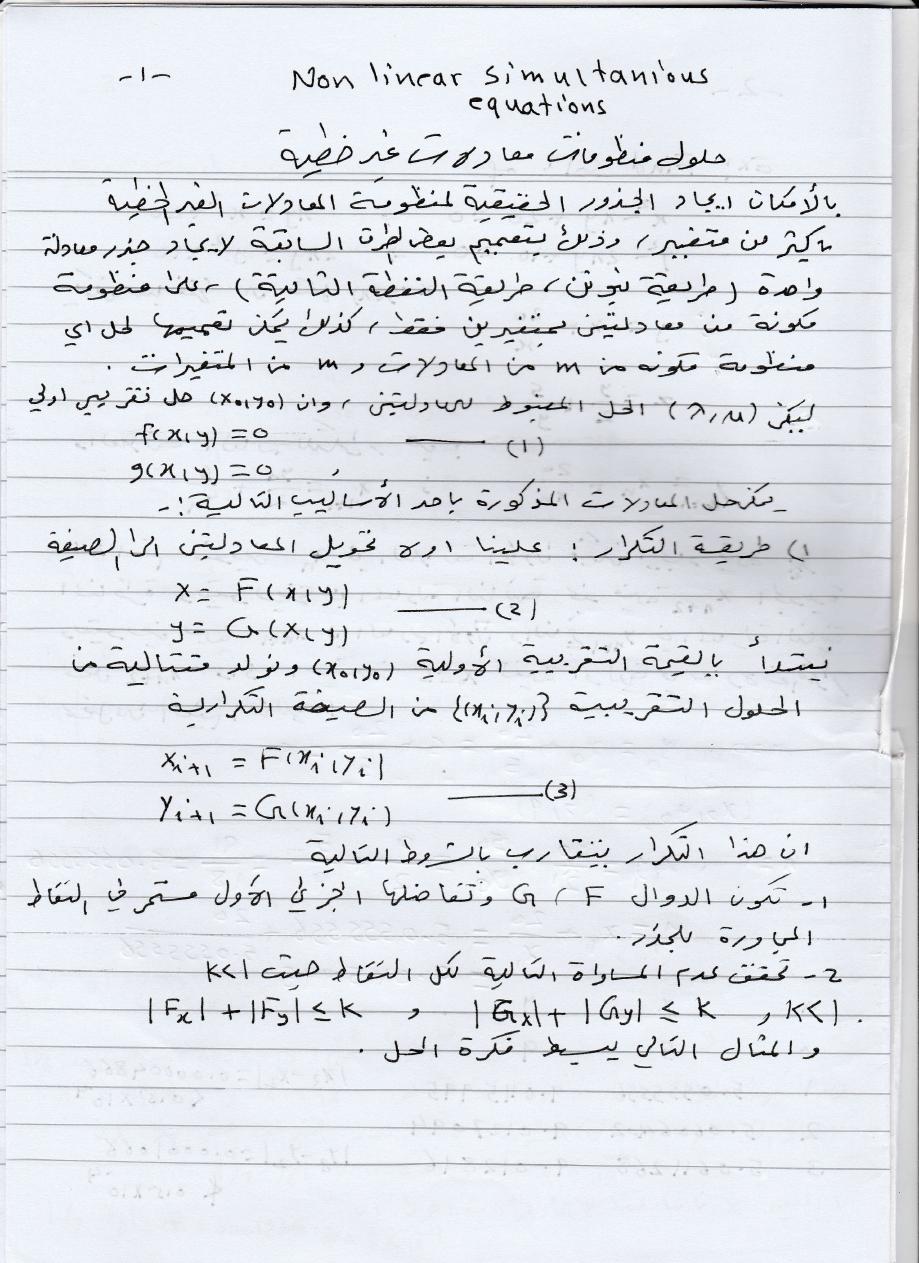 -1-
Non linear simultanious
equations
حلول منظومات معادلات غير خطية
بالأمكان ايجاد الجذور الحقيقية لمنظومة المعادلات الغير الخطية
باكثر من متغير، وذلك بتعميم بعض الطرق السابقة لايجاد جذر معادلة
واحدة (طريقة نيوتن، طريقة النقطة الثابتة)، على منظومة
مكونة من معادلتين بمتغيرين فقط، كذلك يمكن تعميمها لحل اي
منظومة مكونه من m من المعادلات و m من المتغيرات.
ليكن (λ,μ) الحل المضبوط للمعادلتين، وان (x0,y0) حل تقريبي اولي
f(x,y) = 0
——— (1)
g(x,y) = 0
يمكن حل المعادلات المذكورة باحد الأساليب التالية:-
1) طريقة التكرار: علينا اولا تحويل المعادلتين الى الصيغة
x = F(x,y)
——— (2)
y = G(x,y)
نبتدأ بالقيمة التقريبية الأولية (x0,y0) ونولد متتالية من
الحلول التقريبية {(xi,yi)} من الصيغة التكرارية
xi+1 = F(xi,yi)
——— (3)
yi+1 = G(xi,yi)
ان هذا التكرار يتقارب بالشروط التالية
1- تكون الدوال F , G وتفاضلها الجزئي الأول مستمر في النقاط
المجاورة للجذر.
2- تحقق عدم المساواة التالية لكل النقاط حيث K<1
|Fx| + |Fy| ≤ K و |Gx| + |Gy| ≤ K , K<1 .
والمثال التالي يبسط فكرة الحل.